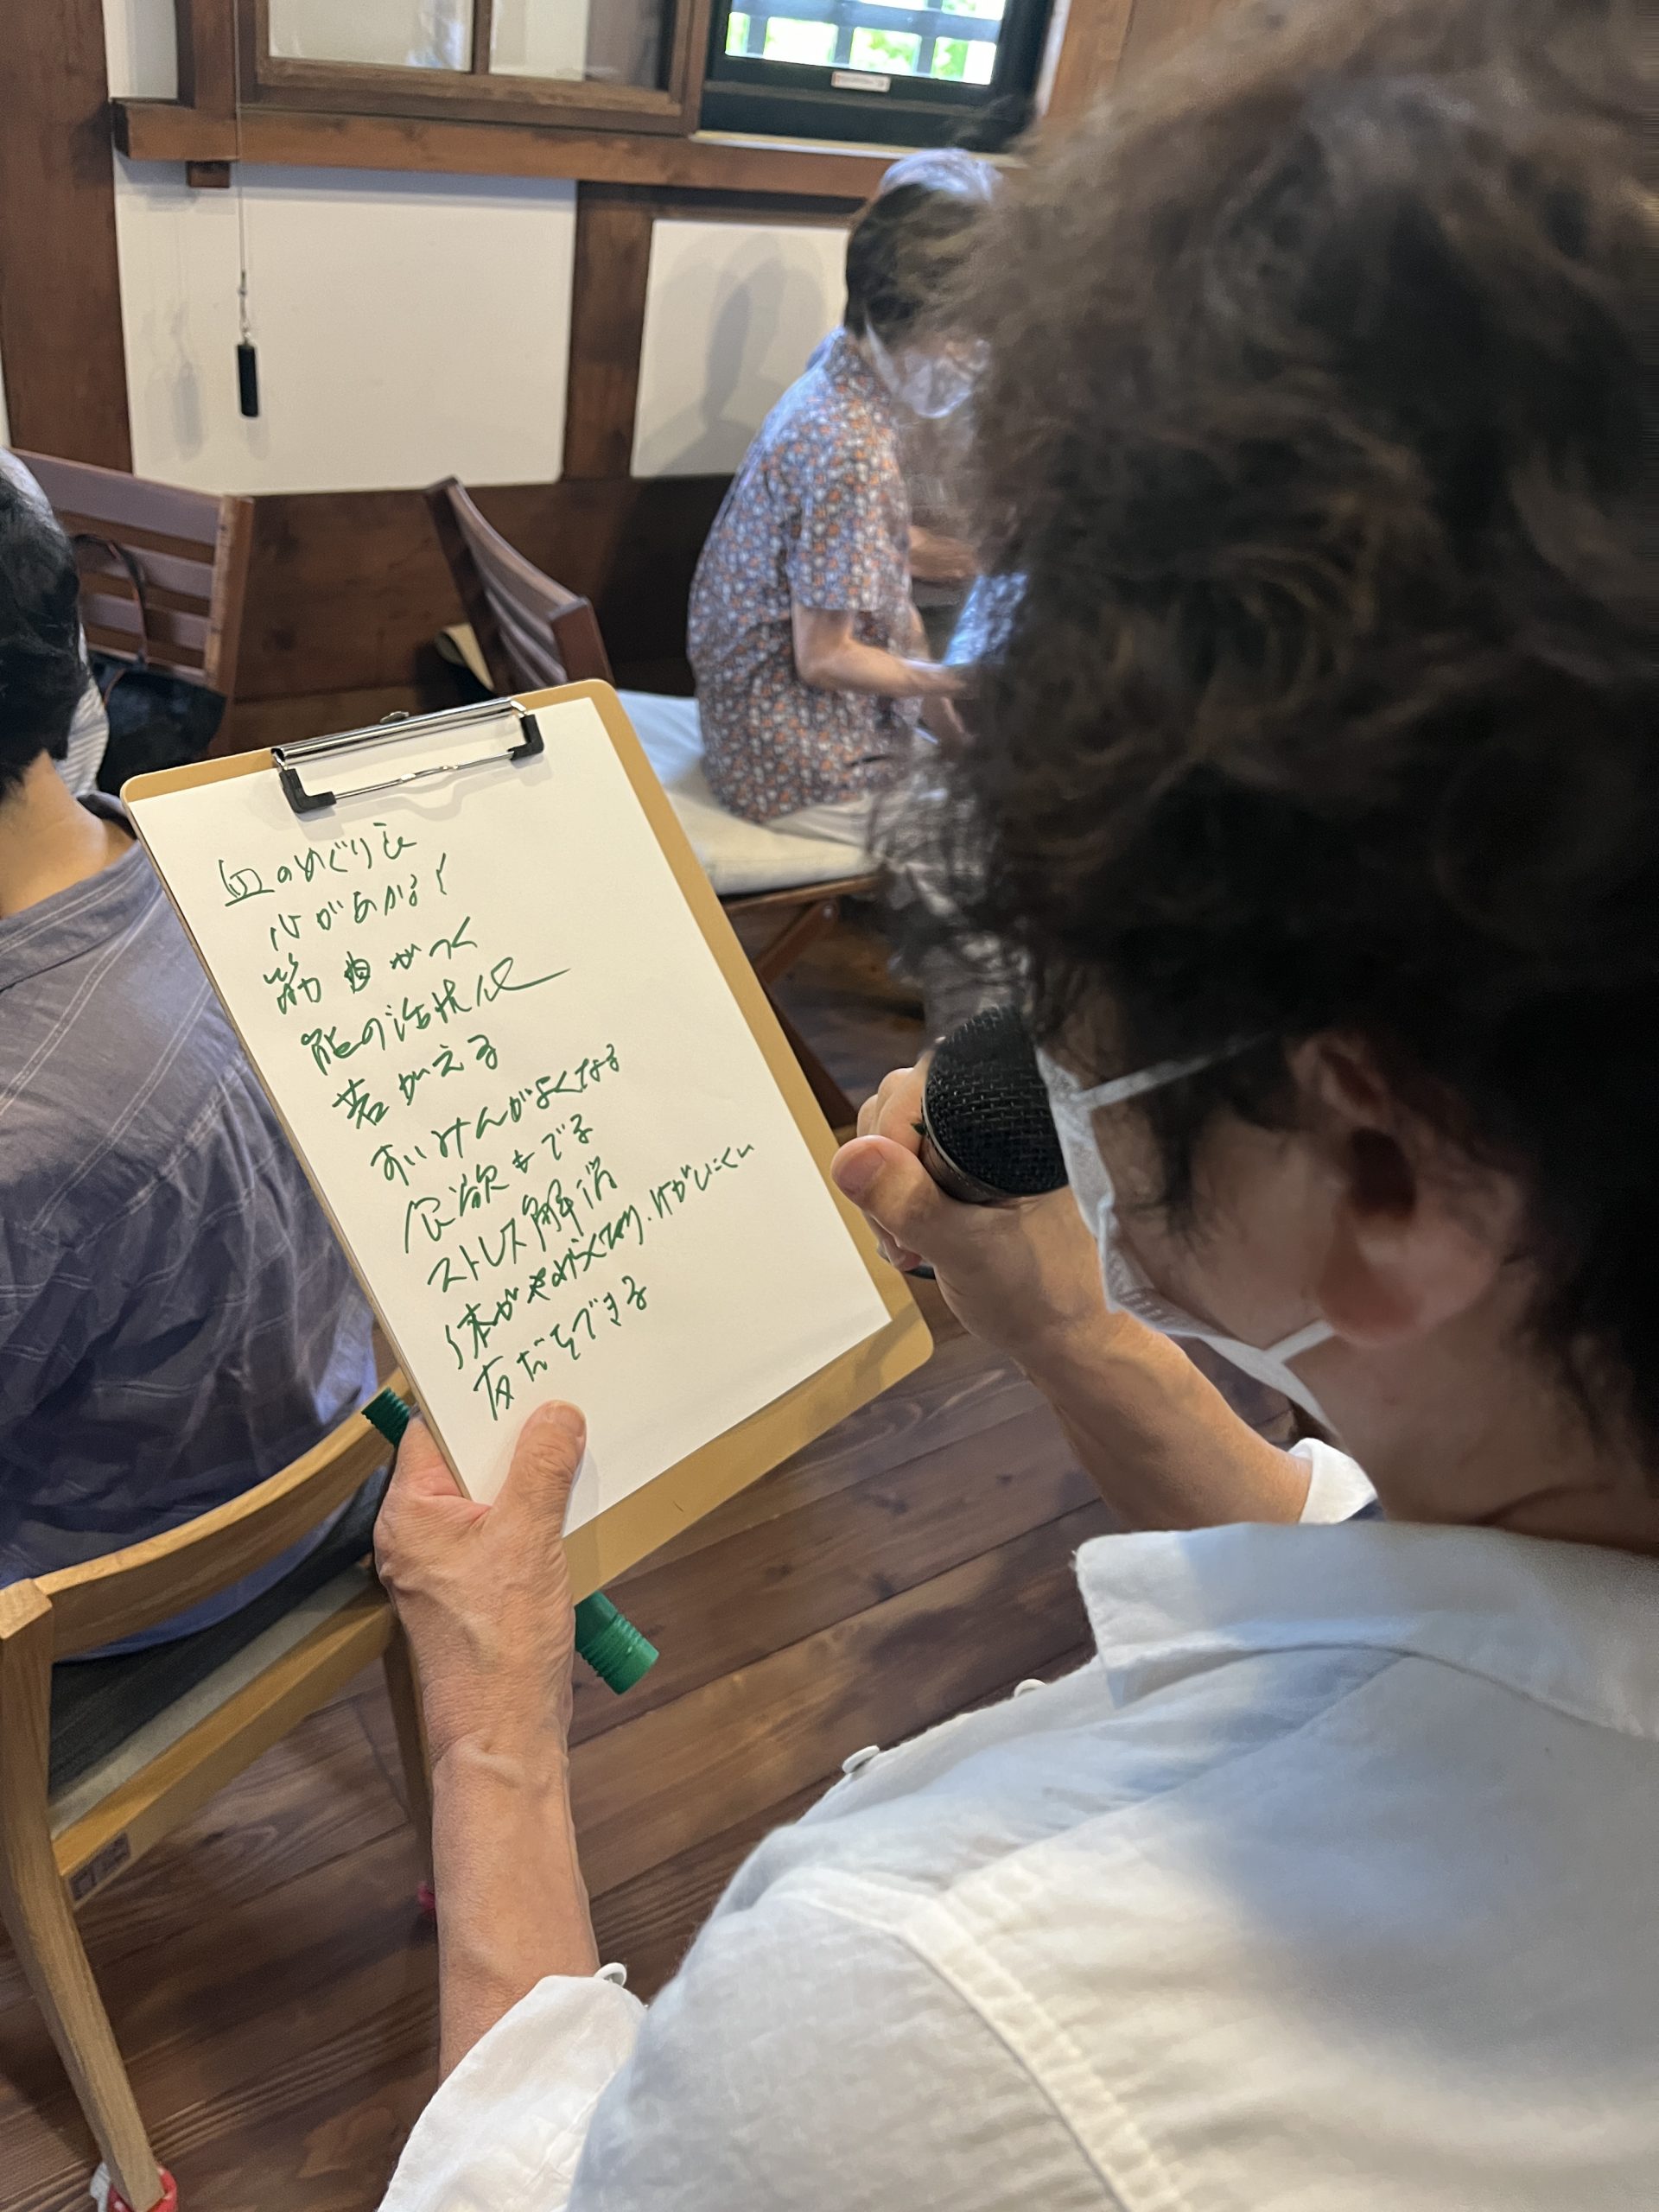 血のめぐり
心があかるく
筋肉がつく
能の活性化
若がえる
すいみんがよくなる
食欲もでる
ストレス解消
体がやわらくてり.けがしにくい
友だちできる